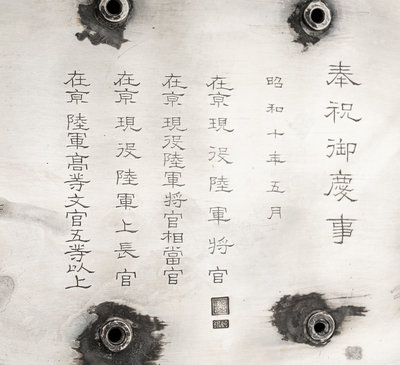 奉祝御慶事
昭和十年五月
在京現役陸軍将官
在京現役陸軍将官相當官
在京現役陸軍上長官
在京陸軍高等文官五等以上